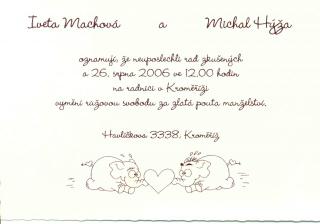 Iveta Machová a Michal Hýža
oznamují, že neuposlechli rad zkušených
a 26. srpna 2006 ve 12.00 hodin
na radnici v Kroměříži
vymění růžovou svobodu za zlatá pouta manželství.
Havlíčkova 3338, Kroměříž